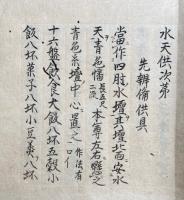 水天供次第
先辦備供具
當作四肘水壇其壇北面安水
天青色幡長五尺二流本尊左右懸之
青色茶壇中心置之作法有口伝
十六盤飲食大飯八坏五穀小
飯八坏菓子八坏小豆羹八坏